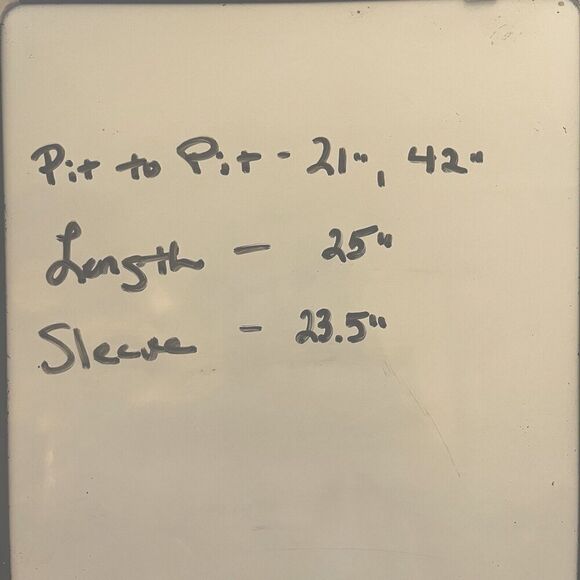 Pit to Pit - 21", 42"
Length - 25"
Sleeve - 23.5"